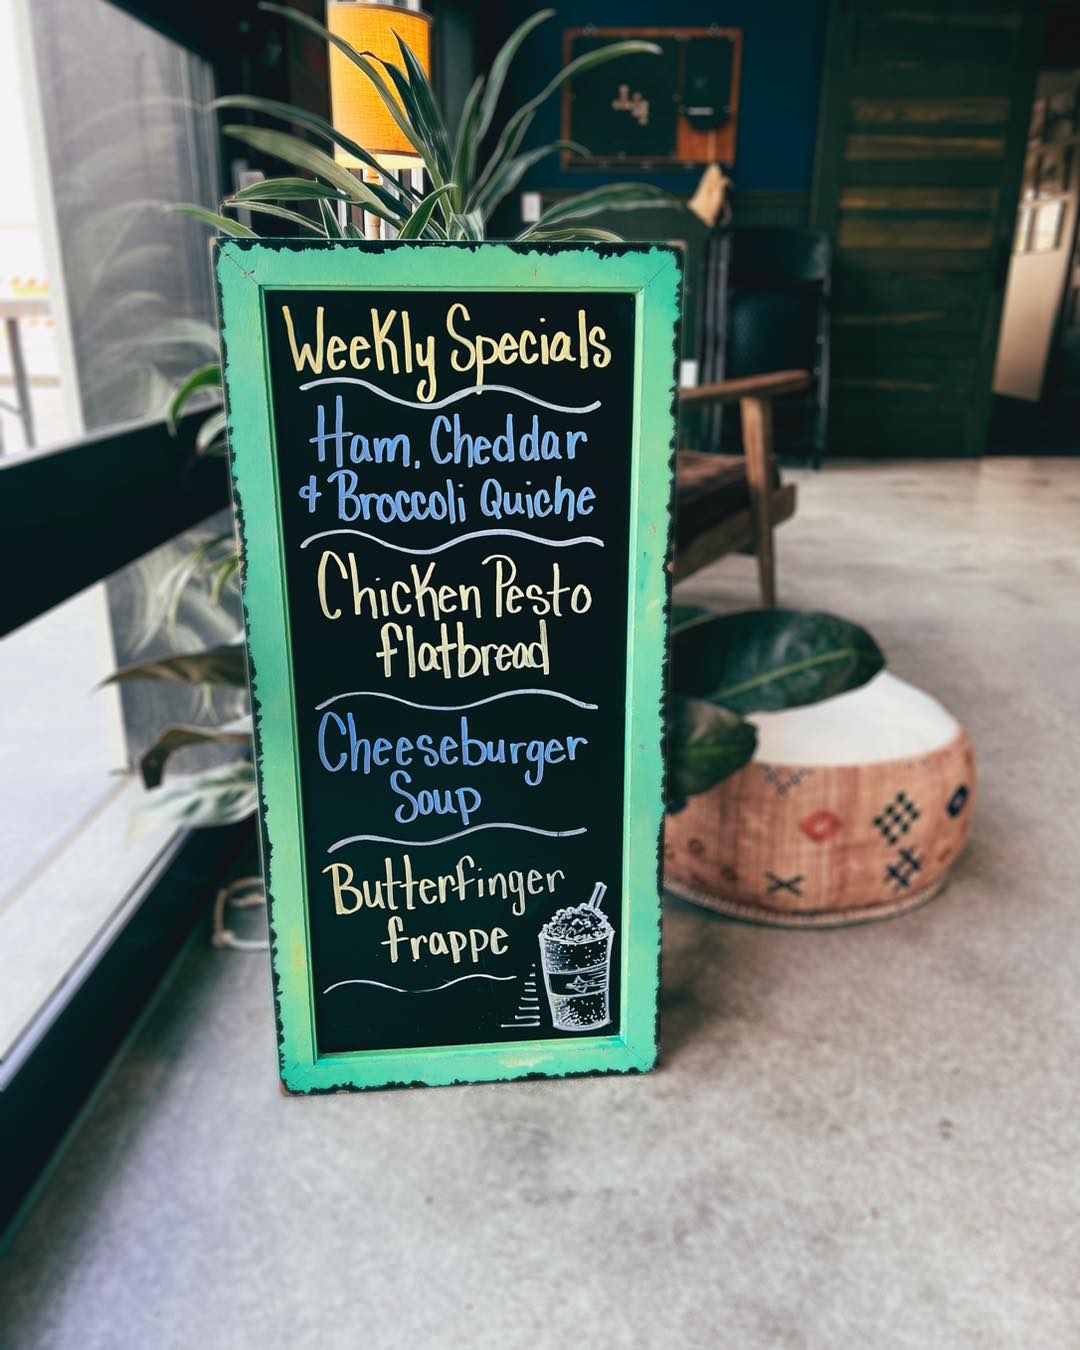 Weekly Specials
Ham, Cheddar
& Broccoli Quiche
Chicken Pesto
flatbread
Cheeseburger
Soup
Butterfinger
frappe